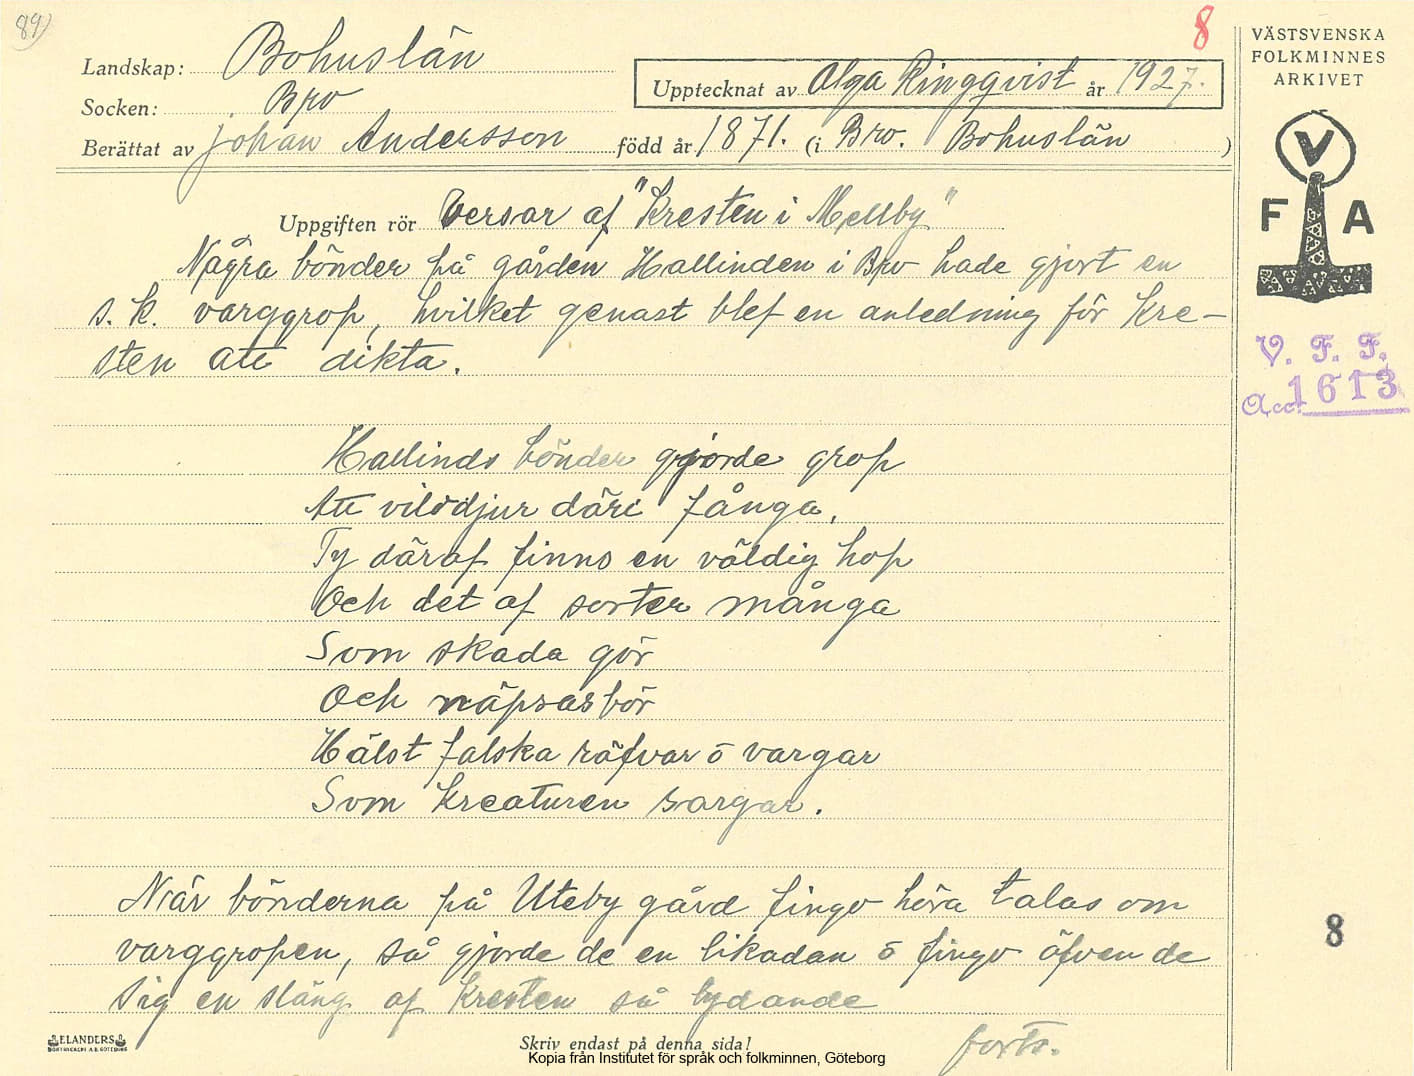 89)
8
Landskap: Bohuslän
Socken: Bro
Upptecknat av Olga Ringqvist år 1927.
Berättat av Johan Andersson född år 1871. (i Bro. Bohuslän )
VÄSTSVENSKA
FOLKMINNES
ARKIVET
V
F A
V. F. F.
Acc. 1613
Uppgiften rör Versar af "Kresten i Mellby"
Några bönder på gården Hallinden i Bro hade gjort en
s.k. varggrop, hvilket genast blef en anledning för Kre-
sten att dikta.
Hallinds bönder gjorde grop
Att vilddjur däri fånga,
Ty däraf finns en väldig hop
Och det af sorter många
Som skada gör
Och näpsas bör
Hälst falska räfvar ō vargar
Som kreaturen sargar.
När bönderna på Uteby gård fingo höra talas om
varggropen, så gjorde de en likadan ō fingo äfven de
sig en släng af Kresten så lydande
forts.
8
ELANDERS
BOKTRYCKERI A.B. GÖTEBORG
Skriv endast på denna sida!
Kopia från Institutet för språk och folkminnen, Göteborg